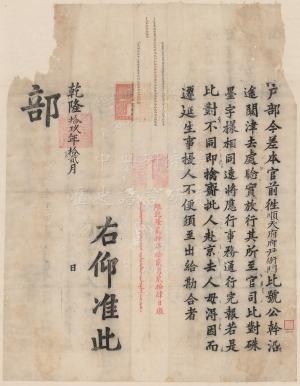 戶部今差本官前往順天府府尹衙門比號公幹沿
途關津去處驗實放行其所至官司比對硃
墨字樣相同速將應行事務通行完報若是
比對不同即擒賫批人赴京去人毋得因而
遷延生事擾人不便須至出給勘合者
右仰准此
乾隆拾玖年拾貳月
日
部